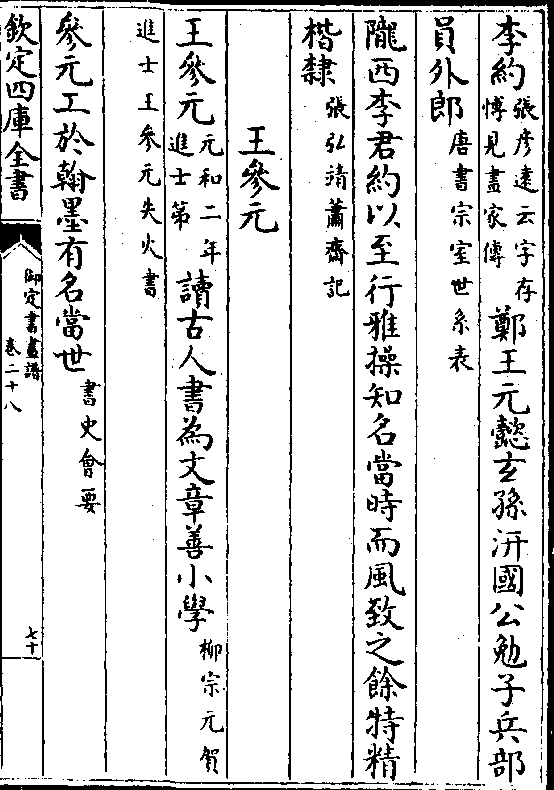 李約張彦逺云字存博見畫家傳鄭王元懿玄孫汧國公勉子兵部
員外郎唐書宗室世系表
隴西李君約以至行雅操知名當時而風致之餘特精
楷隸張弘靖蕭齋記
王參元
王參元元和二年進士第讀古人書為文章善小學柳宗元賀
進士王參元失火書
參元工於翰墨有名當世書史會要
欽定四庫全書
御定書畫譜
卷二十八
七十